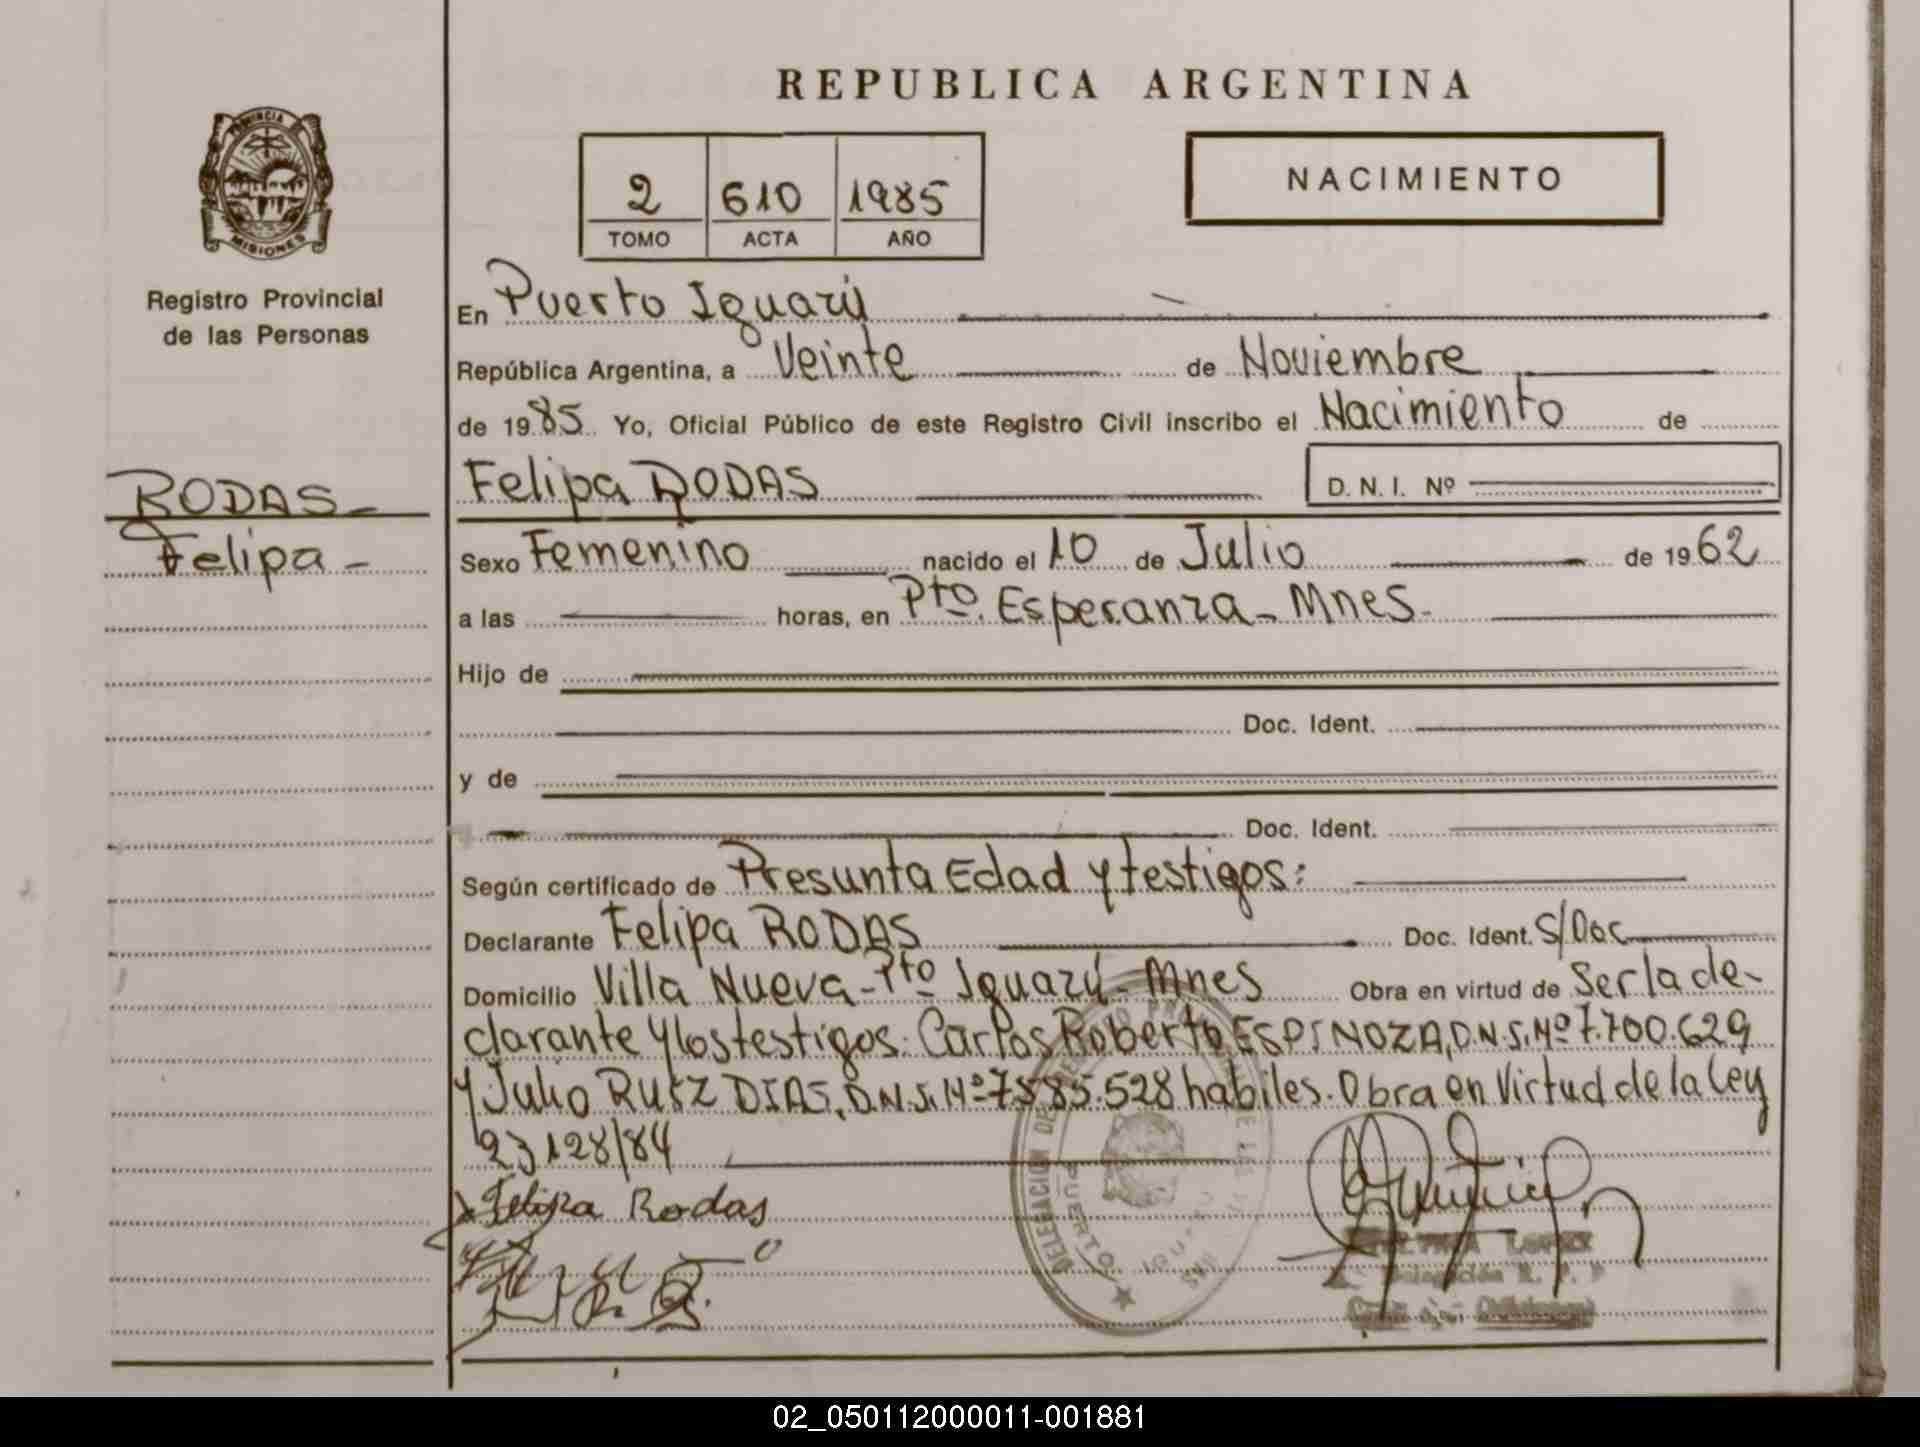 REPUBLICA ARGENTINA
PROVINCIA DE
MISIONES
Registro Provincial
de las Personas
2 610 1985
TOMO ACTA AÑO
NACIMIENTO
En Puerto Iguazú
República Argentina, a Veinte de Noviembre
de 1985 Yo, Oficial Público de este Registro Civil inscribo el Nacimiento de
RODAS-
Felipa-
Felipa RODAS D. N. I. Nº
Sexo Femenino nacido el 10 de Julio de 1962
a las horas, en Pto. Esperanza - Mnes.
Hijo de
Doc. Ident.
y de
Doc. Ident.
Según certificado de Presunta Edad y testigos:
Declarante Felipa RODAS Doc. Ident. S/Doc
Domicilio Villa Nueva - Pto Iguazú - Mnes Obra en virtud de Ser la de-
clarante y los testigos: Carlos Roberto ESPINOZA, D.N.I. Nº 7.700.629
y Julio RUIZ DIAS, D.N.I. Nº 7585.528 habiles. Obra en Virtud de la Ley
23128/84
Felipa Rodas
DELEGACION
PUERTO
LOPEZ
Delegación R. P. P
02_050112000011-001881